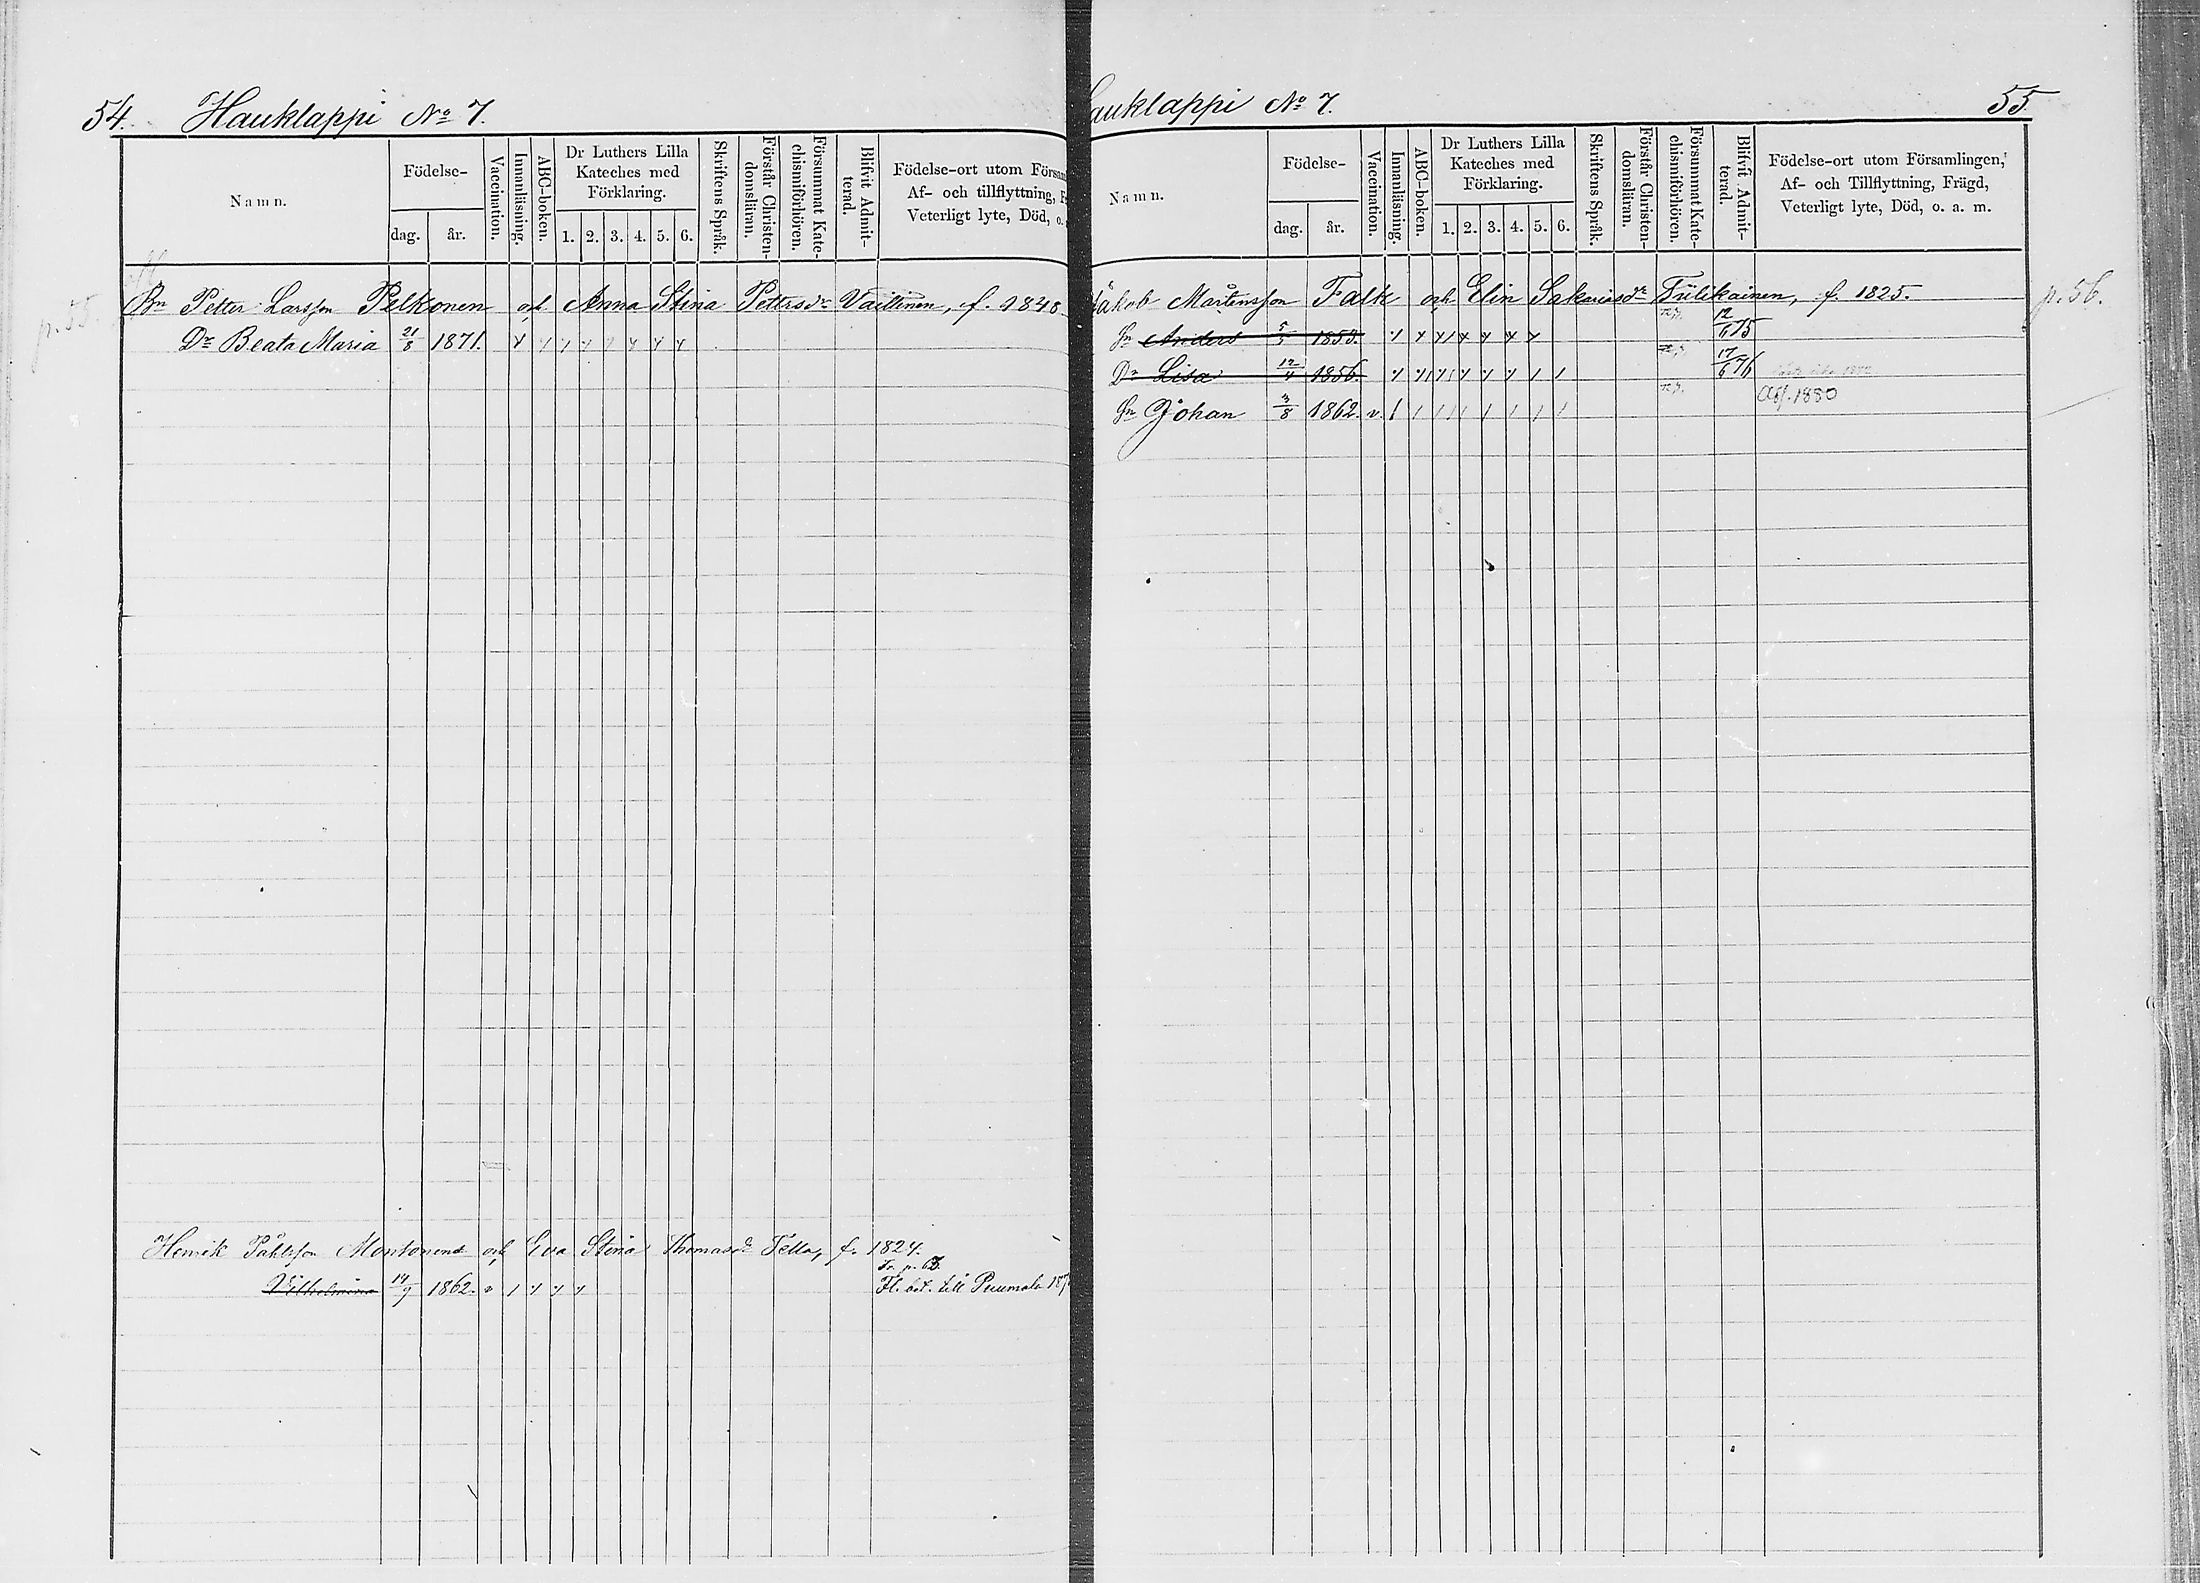 54. Hauklappi No 7.
Namn.
Födelse-
dag.
år.
Vaccination.
Innanläsning.
ABC-boken.
Dr Luthers Lilla
Kateches med
Förklaring.
1. 2. 3. 4. 5. 6.
Skriftens Språk.
Förstår Christen-
domsläran.
Försummat Kate-
chismiförhören.
Blifvit Admit-
terad.
Födelse-ort utom Försam
Af- och tillflyttning,
Veterligt lyte, Död, o.
p. 55
Petter Larsson Pelkonen och Anna Stina Pettersdr Vaittinen, f. 1848
Dr Beata Maria 21/8 1871.
Henrik Påhlsson Montonen och Eva Stina Thomasdr Tella, f. 1824.
Fr. p.
Vilhelmina 1862. v Fl. bet. till Puumala 187
auklappi No 7. 55
Namn.
Födelse-
dag.
år.
Vaccination.
Innanläsning.
ABC-boken.
Dr Luthers Lilla
Kateches med
Förklaring.
1. 2. 3. 4. 5. 6.
Skriftens Språk.
Förstår Christen-
domsläran.
Försummat Kate-
chismiförhören.
Blifvit Admit-
terad.
Födelse-ort utom Församlingen,
Af- och Tillflyttning, Frägd,
Veterligt lyte, Död, o. a. m.
Jakob Mårtensson Falk och Elin Sakariasdr Tulikainen, f. 1825. p. 56.
Sn Anders 1853. 12/6 75
Dr Lisa 12/4 1856. 17/6 76
Sn Johan 3/8 1862. v. 1880